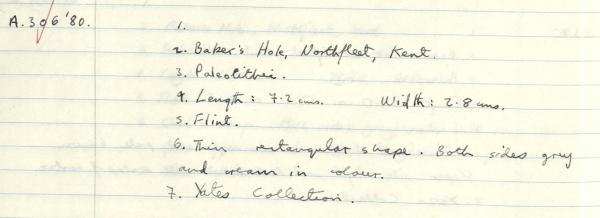 A.306'80.
1.
2. Baker's Hole, Northfleet, Kent.
3. Paleolithic.
4. Length: 7.2 cms. Width: 2.8 cms.
5. Flint.
6. Thin rectangular shape. Both sides grey
and cream in colour.
7. Yates Collection.